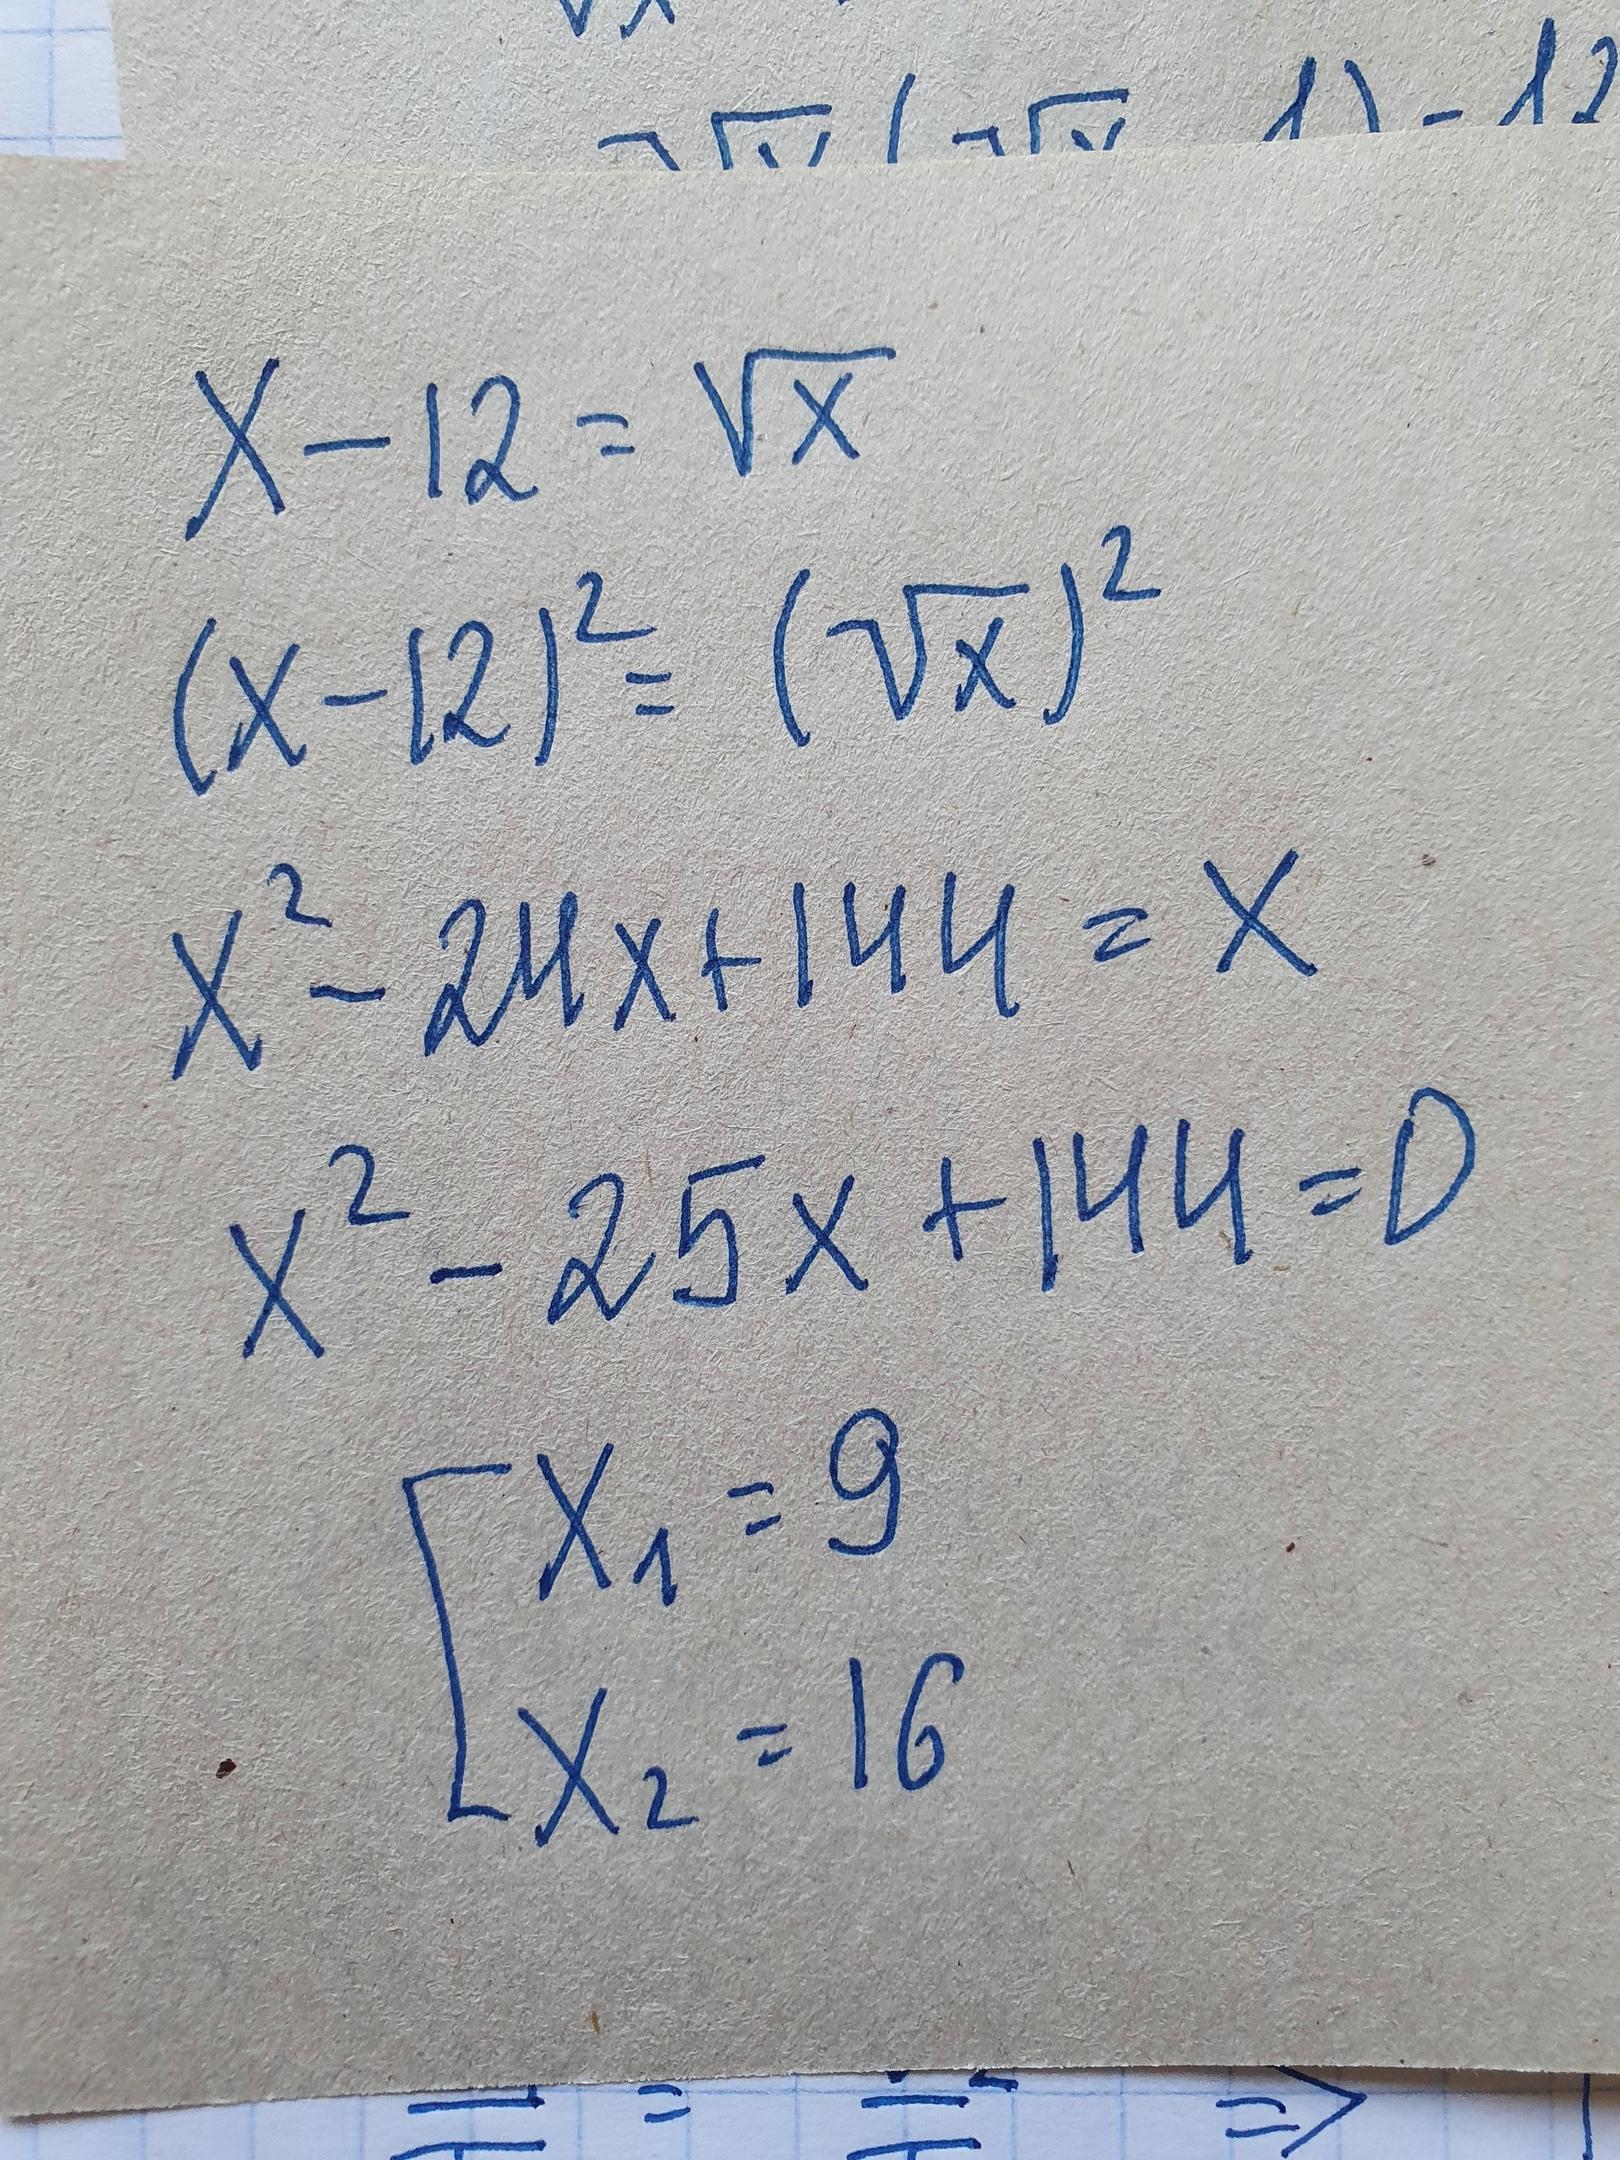 √x
√x (√x 1) - 12
x - 12 = √x
(x - 12)² = (√x)²
x² - 24x + 144 = x
x² - 25x + 144 = 0
[ x₁ = 9
x₂ = 16
= =>